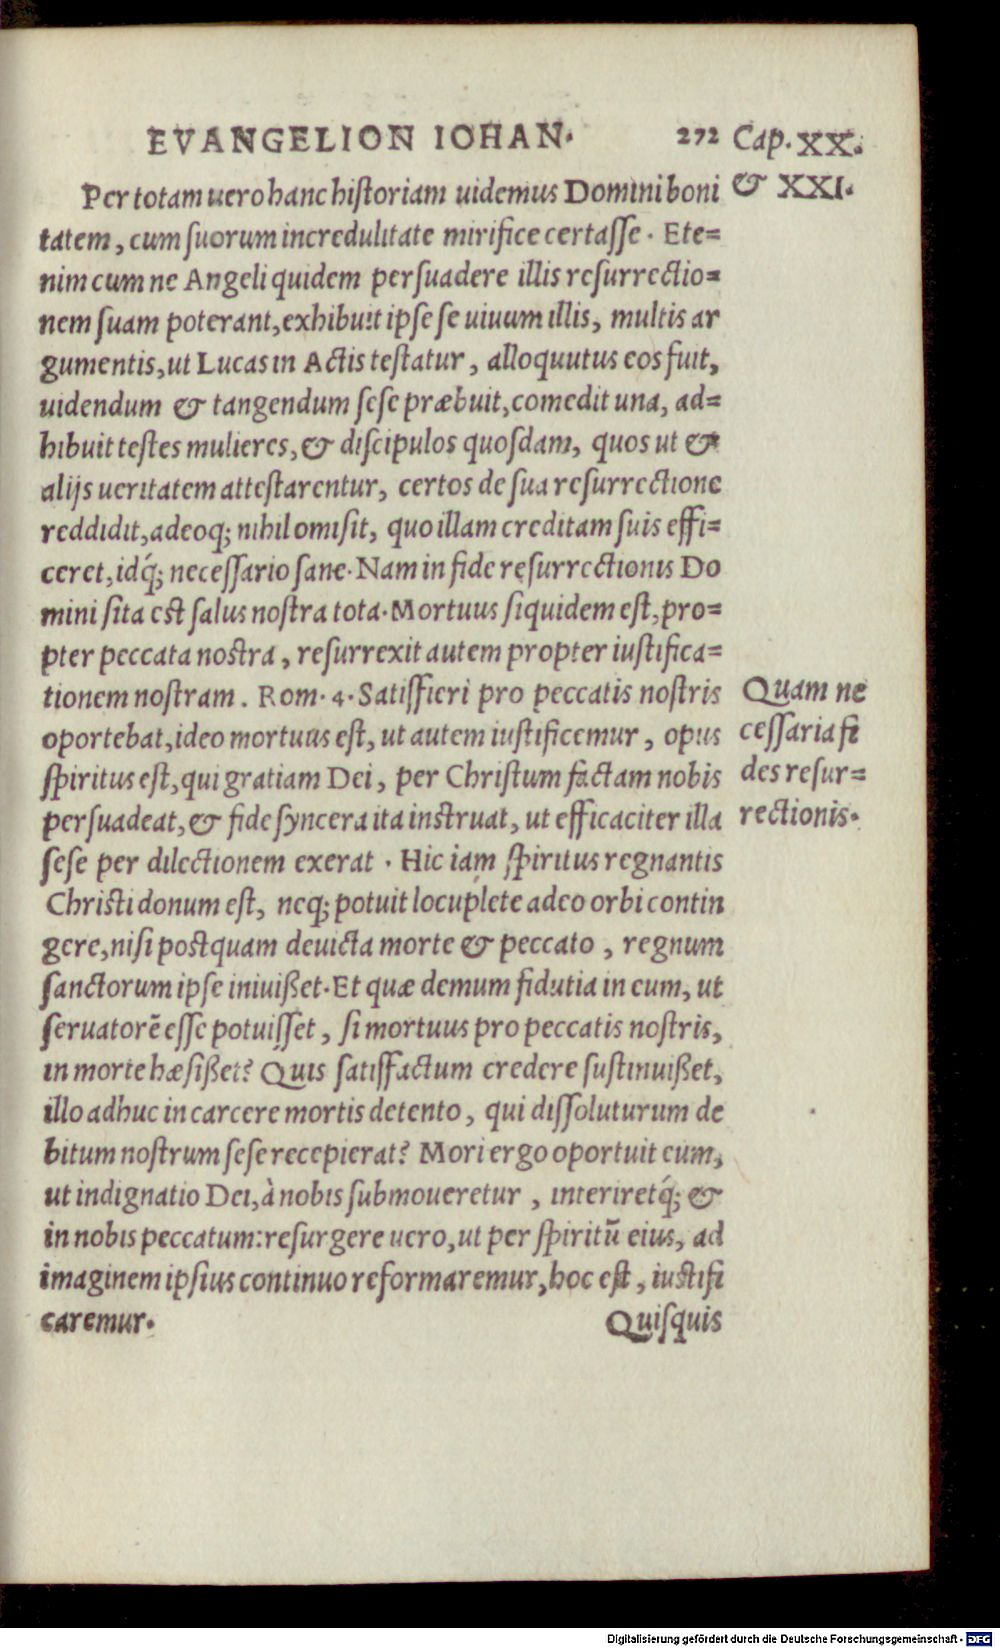 EVANGELION IOHAN. 272 Cap. XX.
& XXI.
Per totam uero hanc historiam uidemus Domini boni
tatem, cum suorum incredulitate mirifice certasse. Ete=
nim cum ne Angeli quidem persuadere illis resurrectio=
nem suam poterant, exhibuit ipse se uiuum illis, multis ar
gumentis, ut Lucas in Actis testatur, alloquutus eos fuit,
uidendum & tangendum sese præbuit, comedit una, ad=
hibuit testes mulieres, & discipulos quosdam, quos ut &
alijs ueritatem attestarentur, certos de sua resurrectione
reddidit, adeoq; nihil omisit, quo illam creditam suis effi=
ceret, idq́; necessario sane. Nam in fide resurrectionis Do
mini sita est salus nostra tota. Mortuus siquidem est, pro=
pter peccata nostra, resurrexit autem propter iustifica=
tionem nostram. Rom. 4. Satisfieri pro peccatis nostris
oportebat, ideo mortuus est, ut autem iustificemur, opus
spiritus est, qui gratiam Dei, per Christum factam nobis
persuadeat, & fide syncera ita instruat, ut efficaciter illa
sese per dilectionem exerat. Hic iam spiritus regnantis
Christi donum est, neq; potuit locuplete adeo orbi contin
gere, nisi postquam deuicta morte & peccato, regnum
sanctorum ipse iniuißet. Et quæ demum fidutia in eum, ut
seruatorē esse potuisset, si mortuus pro peccatis nostris,
in morte hæsißet? Quis satisfactum credere sustinuißet,
illo adhuc in carcere mortis detento, qui dissoluturum de
bitum nostrum sese recepierat? Mori ergo oportuit eum,
ut indignatio Dei, à nobis submoueretur, interiretq́; &
in nobis peccatum: resurgere uero, ut per spiritū eius, ad
imaginem ipsius continuo reformaremur, hoc est, iustifi
caremur.
Quisquis
Quam ne
cessaria fi
des resur=
rectionis.
Digitalisierung gefördert durch die Deutsche Forschungsgemeinschaft - DFG